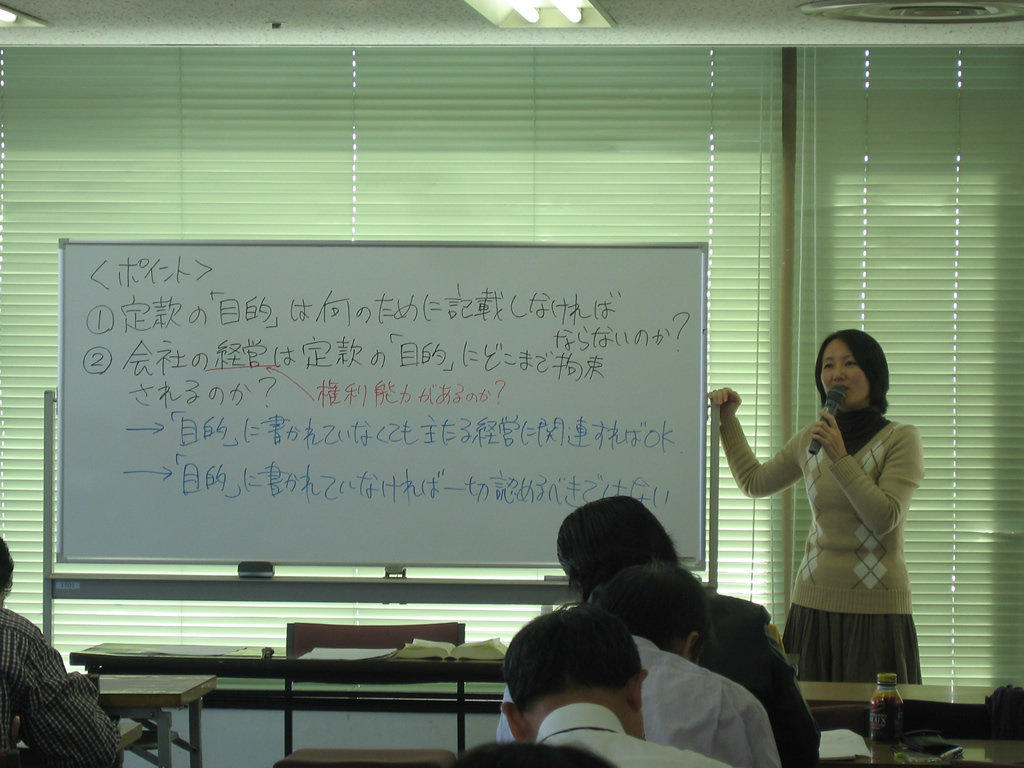 <ポイント>
① 定款の「目的」は何のために記載しなければ
ならないのか?
② 会社の経営は定款の「目的」にどこまで拘束
されるのか?
権利能力があるのか?
→「目的」に書かれていなくても主たる経営に関連すればOK.
→「目的」に書かれていなければ一切認めるべきではない